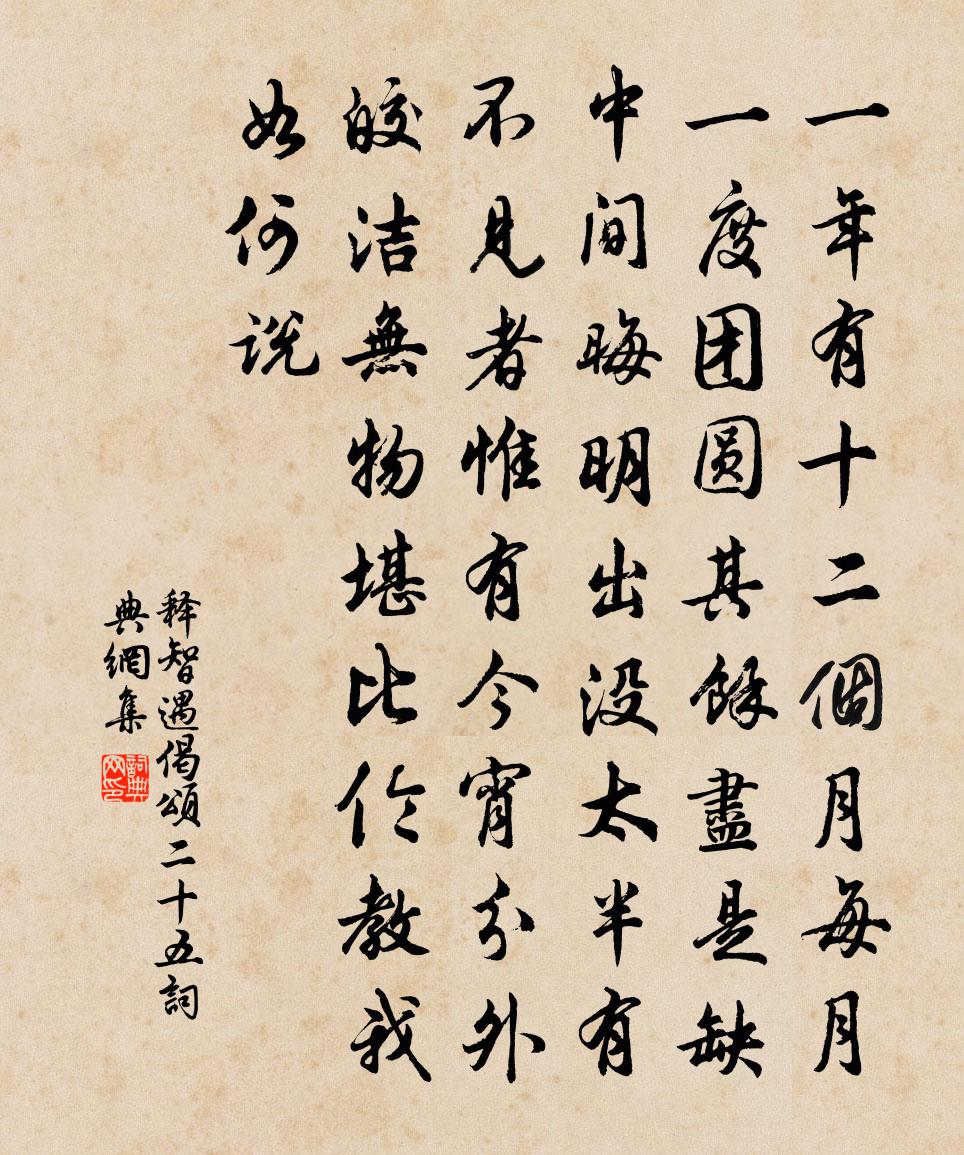 一年有十二個月每月
一度团圆其餘盡是缺
中间晦明出没太半有
不見者惟有今宵分外
皎洁無物堪比伦教我
如何说
释智遇偈頌二十五詞
典網集
詞典
网印